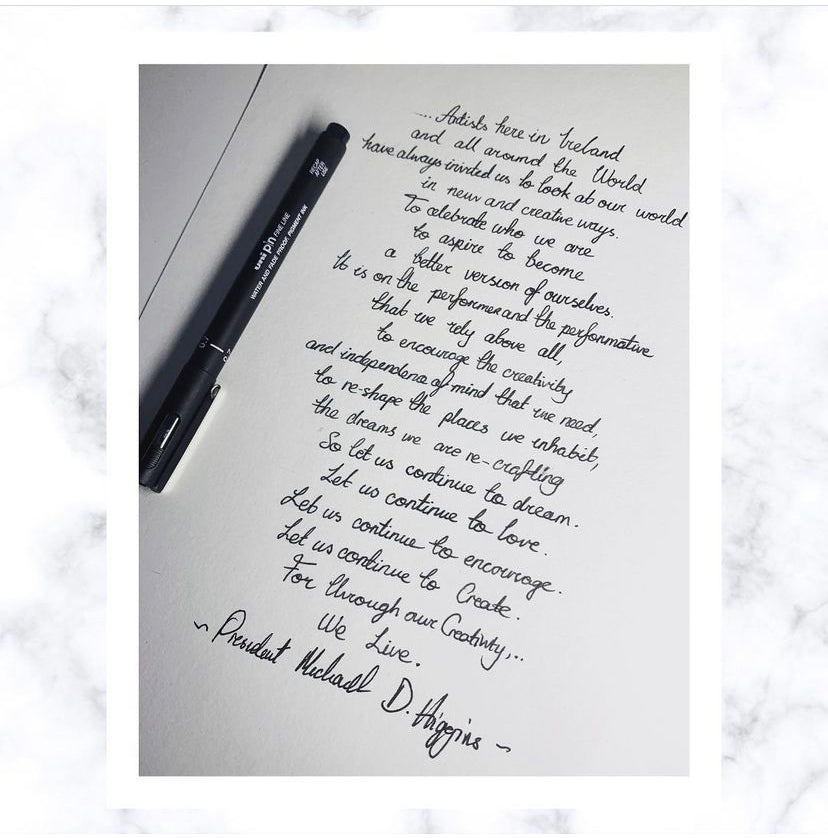 .... Artists here in Ireland
and all around the World
have always invited us to look at our world
in new and creative ways.
To celebrate who we are
to aspire to become
a better version of ourselves.
It is on the performer and the performative
that we rely above all,
to encourage the creativity
and independence of mind that we need,
to re-shape the places we inhabit,
the dreams we are re-crafting
So let us continue to dream.
Let us continue to love.
Let us continue to encourage.
Let us continue to Create.
For through our Creativity,..
We Live.
~ President Michael D. Higgins ~
RECAP
AFTER
USE
uni pin FINE LINE
WATER AND FADE PROOF, PIGMENT INK